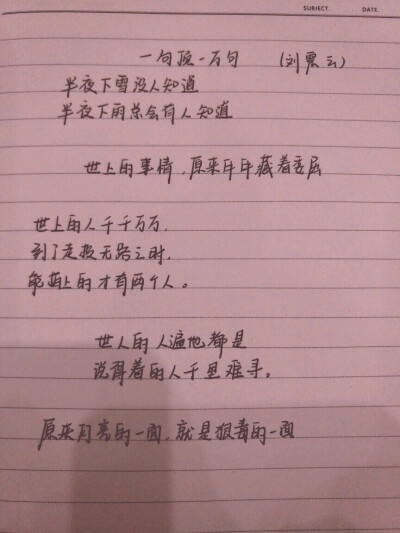 SUBJECT. DATE.
一句顶一万句 (刘震云)
半夜下雪没人知道
半夜下雨总会有人知道
世上的事情,原来件件藏着委屈
世上的人千千万万,
到了走投无路之时,
能指上的才有两个人。
世人的人遍地都是
说得着的人千里难寻。
原来月亮的一面,就是狠毒的一面